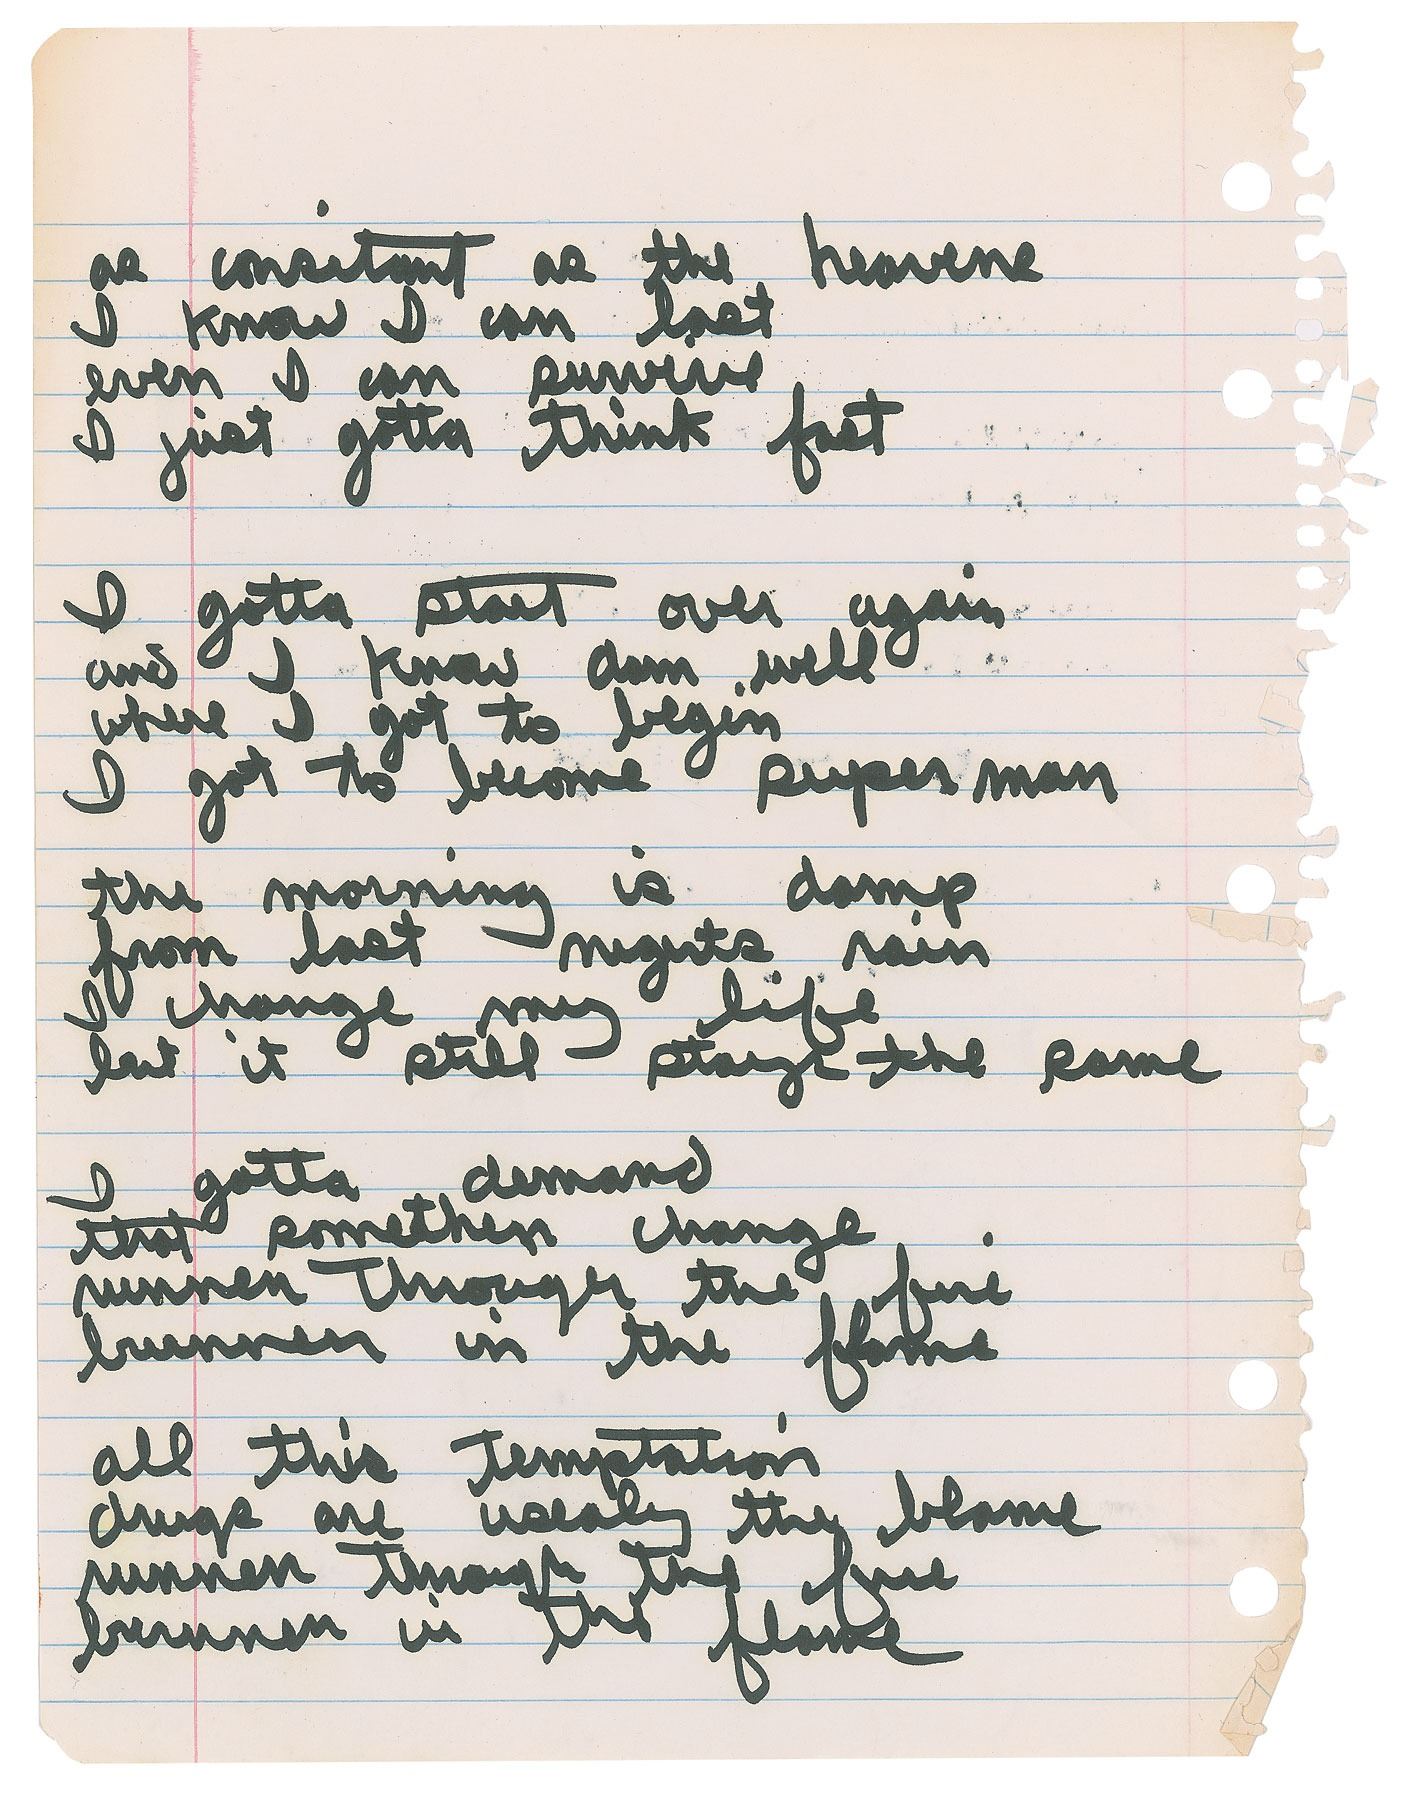 as consitant as the heavens
I know I can last
even I can survive
I just gotta think fast
I gotta start over again
and I know dam well
where I got to begin
I got to become super man
the morning is damp
from last nights rain
I change my life
but it still stays the same
I gotta demand
that somethen change
runnen through the fire
burnnen in the flame
all this temptation
drugs are usealy the blame
runnen through the fire
burnnen in the flame